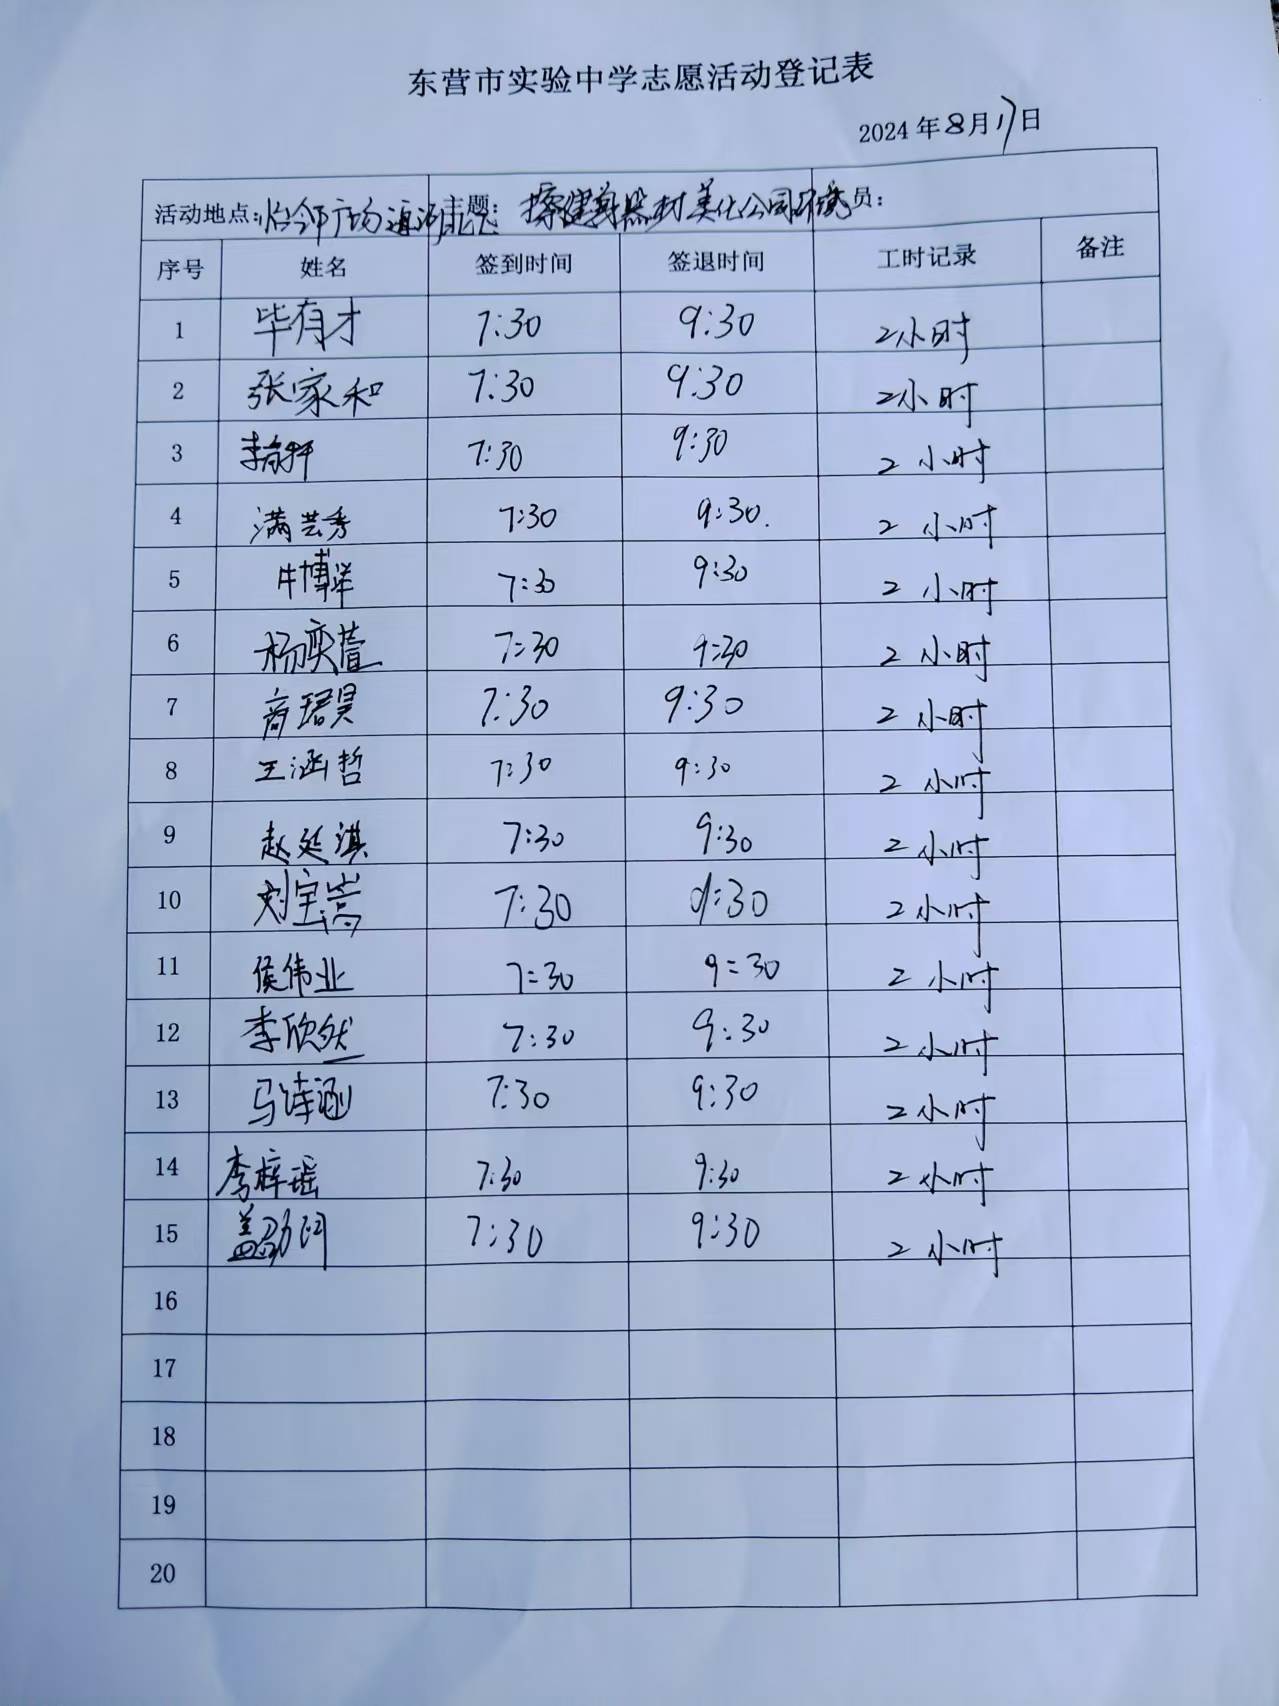 东营市实验中学志愿活动登记表
2024年8月17日
活动地点: 怡 广场 主题: 擦健身器材美化公园环境 员:
序号 姓名 签到时间 签退时间 工时记录 备注
1 毕有才 7:30 9:30 2小时
2 张家和 7:30 9:30 2小时
3 李 7:30 9:30 2小时
4 满芸秀 7:30 9:30. 2小时
5 牛博举 7:30 9:30 2小时
6 杨奕萱 7:30 9:30 2小时
7 商珺昊 7:30 9:30 2小时
8 王涵哲 7:30 9:30 2小时
9 赵延淇 7:30 9:30 2小时
10 刘宝嵩 7:30 9:30 2小时
11 侯伟业 7:30 9:30 2小时
12 李欣然 7:30 9:30 2小时
13 马诗涵 7:30 9:30 2小时
14 李梓瑶 7:30 9:30 2小时
15 盖 7:30 9:30 2小时
16
17
18
19
20